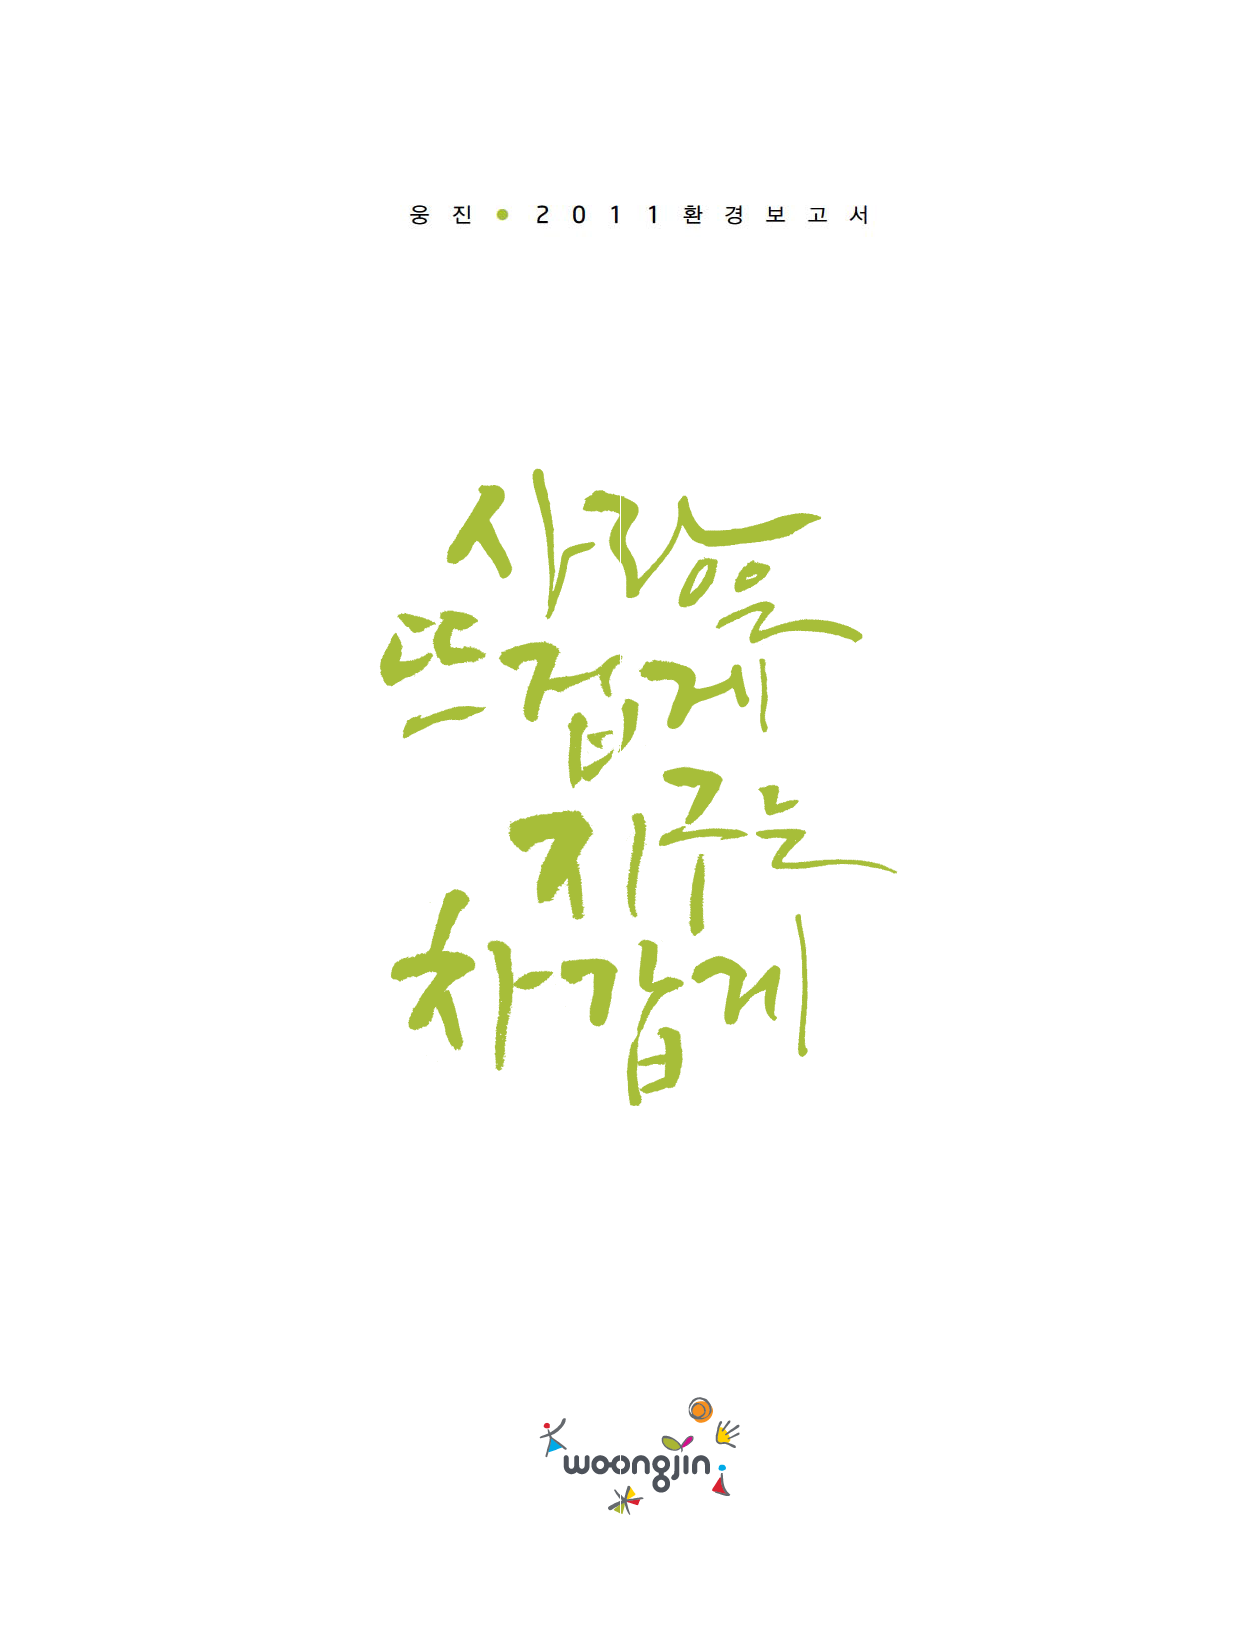 웅진 ● 2011환경보고서
사랑은
뜨겁게
지구는
차갑게
woongjin